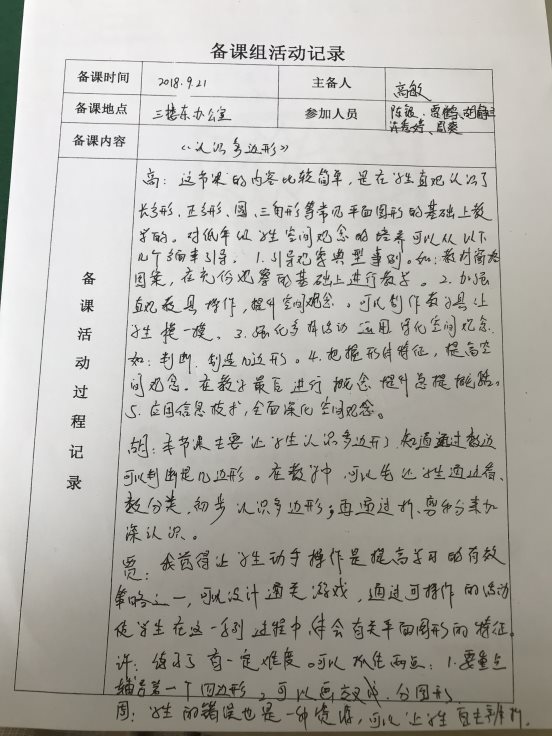 备课组活动记录
备课时间 2018.9.21 主备人 高敏
备课地点 三楼东办公室 参加人员 陈敏、贾鹤、胡静
许 婷、周爽
备课内容 《认识多边形》
备课活动过程记录
高：这节课的内容比较简单，是在学生直观认识了
长方形、正方形、圆、三角形等常见平面图形的基础上教
学的。对低年级学生空间观念的培养可以从以下
几个方面来引导，1.引导观察典型事例。如：教材窗格
图案，在充份观察的基础上进行教学。2.加强
直观教具操作，提升空间观念。可以制作教学具让
学生摸一摸。3.强化多样活动 运用深化空间观念
如：判断、创造几边形。4.把握形体特征，提高空
间观念。在教学最后进行概念提升总提概括。
5.应用信息技术，全面深化空间观念。
胡：本节课主要让学生认识多边形，知道通过数边
可以判断是几边形。在教学中，可以先让学生通过看、
数分类，初步认识多边形；再通过折、剪和分来加
深认识。
贾：我觉得让学生动手操作是提高学习的有效
策略之一，可以设计通关游戏，通过可操作的活动
使学生在这一系列过程中，体会有关平面图形的特征。
许：练习 有一定难度。可以抓住两点：1.要重点
辅导第一个四边形，2.可以画 分图形
周：学生的错误也是一种资源，可以让学生自主辨析。